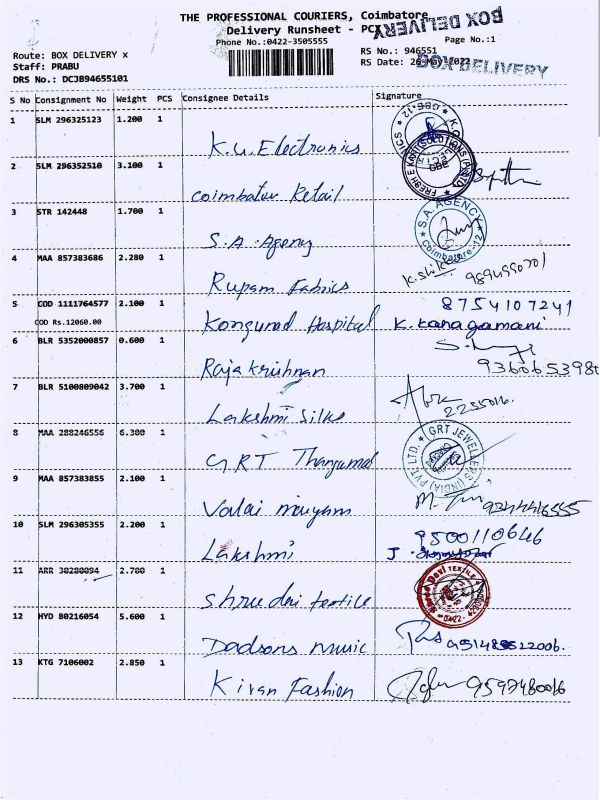 THE PROFESSIONAL COURIERS, Coimbatore
Delivery Runsheet - PCX
BOX DELIVERY
Phone No.:0422-3505555
Page No.:1
Route: BOX DELIVERY x
RS No.: 946551
Staff: PRABU
RS Date: 26 May 2022
BOX DELIVERY
DRS No.: DCJB94655101
S No Consignment No Weight PCS Consignee Details Signature
1 SLM 296325123 1.200 1 K.U. Electronics
2 SLM 296352510 3.100 1 Coimbatore Retail
3 STR 142448 1.700 1 S.A. Agency
S.A. AGENCY Coimbatore-12
4 MAA 857383686 2.280 1 Rupam Fabrics
5 COD 1111764577 2.100 1 Kongunad Hospital K. Kanagamani
8754107241
COD Rs.12060.00
6 BLR 5352000857 0.600 1 Raja Krishnan
7 BLR 5100809042 3.700 1 Lakshmi Silks
8 MAA 288246556 6.300 1 GRT Thangamal
GRT JEWELLERS (INDIA) PVT. LTD.
9 MAA 857383855 2.100 1
10 SLM 296305355 2.200 1 Lakshmi
9500110646
11 ARR 30280094 2.700 1 Shree devi textile
12 HYD 80216054 5.600 1 Dadsons music
13 KTG 7106002 2.850 1 Kiran Fashion